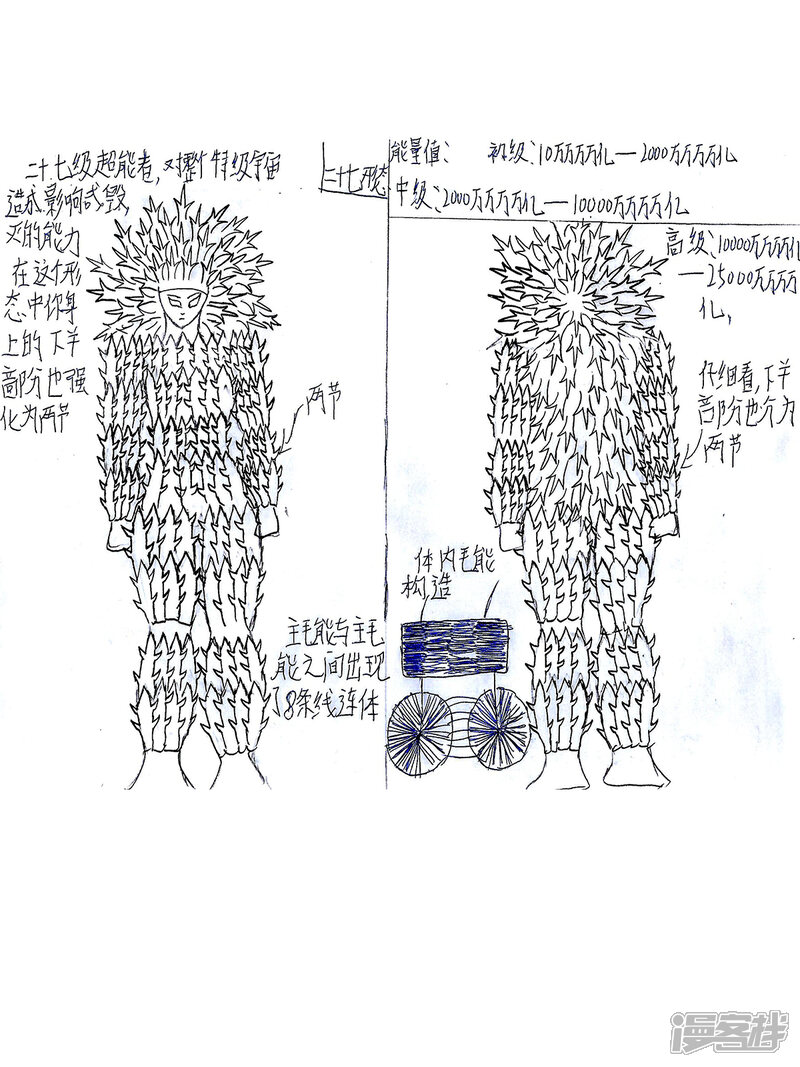 二十七级超能者,对整个特级宇宙
造成影响或毁
灭的能力
在这个形
态中你身
上的下半
部分也强
化为两节
两节
主毛能与主毛
能之间出现
了8条线连体
二十七形态
能量值: 初级:10万万万亿—2000万万万亿
中级:2000万万万亿—10000万万万亿
高级:10000万万万亿
—25000万万万
亿,
仔细看,下半
部分也分为
两节
体内毛能
构造
漫客栈